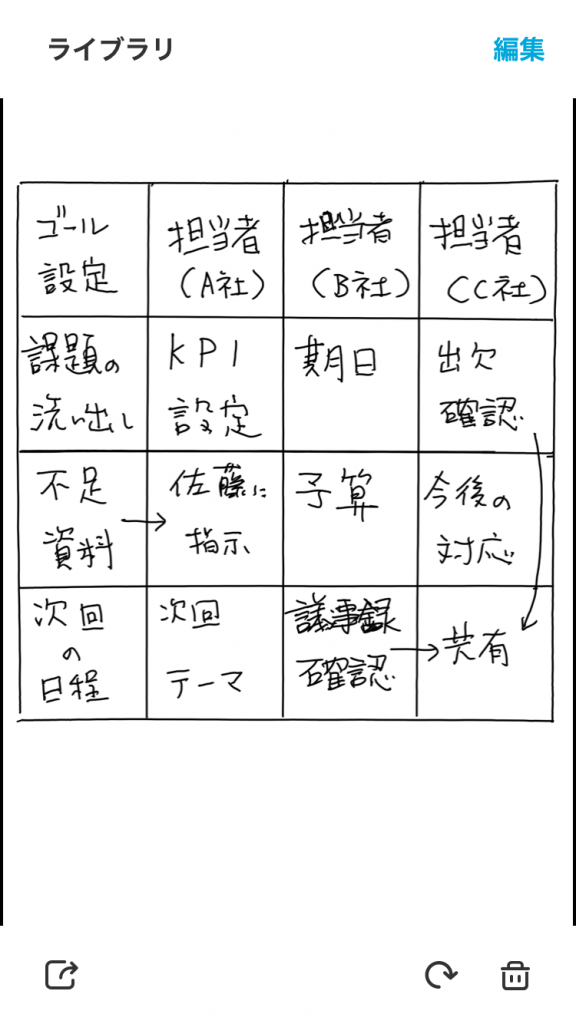 ライブラリ 編集
ゴール
設定
担当者
(A社)
担当者
(B社)
担当者
(C社)
課題の
洗い出し
KPI
設定
期日
出欠
確認
不足
資料
→
佐藤に
指示
予算
今後の
対応
次回
の
日程
次回
テーマ
議事録
確認
→
共有